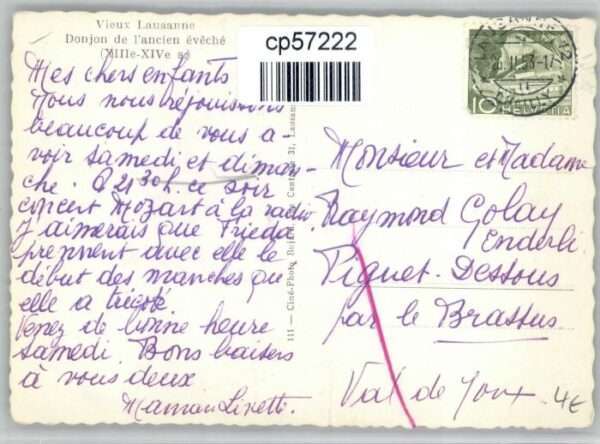 Vieux Lausanne
Donjon de l'ancien évêché
(XIIIe-XIVe s.)
cp57222
10 HELVETIA
Mes chers enfants
Nous nous réjouissons
beaucoup de vous a-
voir samedi et diman-
che. A 21 30 h. ce soir
concert Mozart à la radio.
J'aimerais que Frieda
prennent avec elle le
début des manches que
elle a tricoté.
Venez de bonne heure
samedi. Bons baisers
à vous deux
Maman Linette.
Monsieur et Madame
Raymond Golay
Enderli
Piguet-Dessous
par le Brassus
Val de Joux
4€